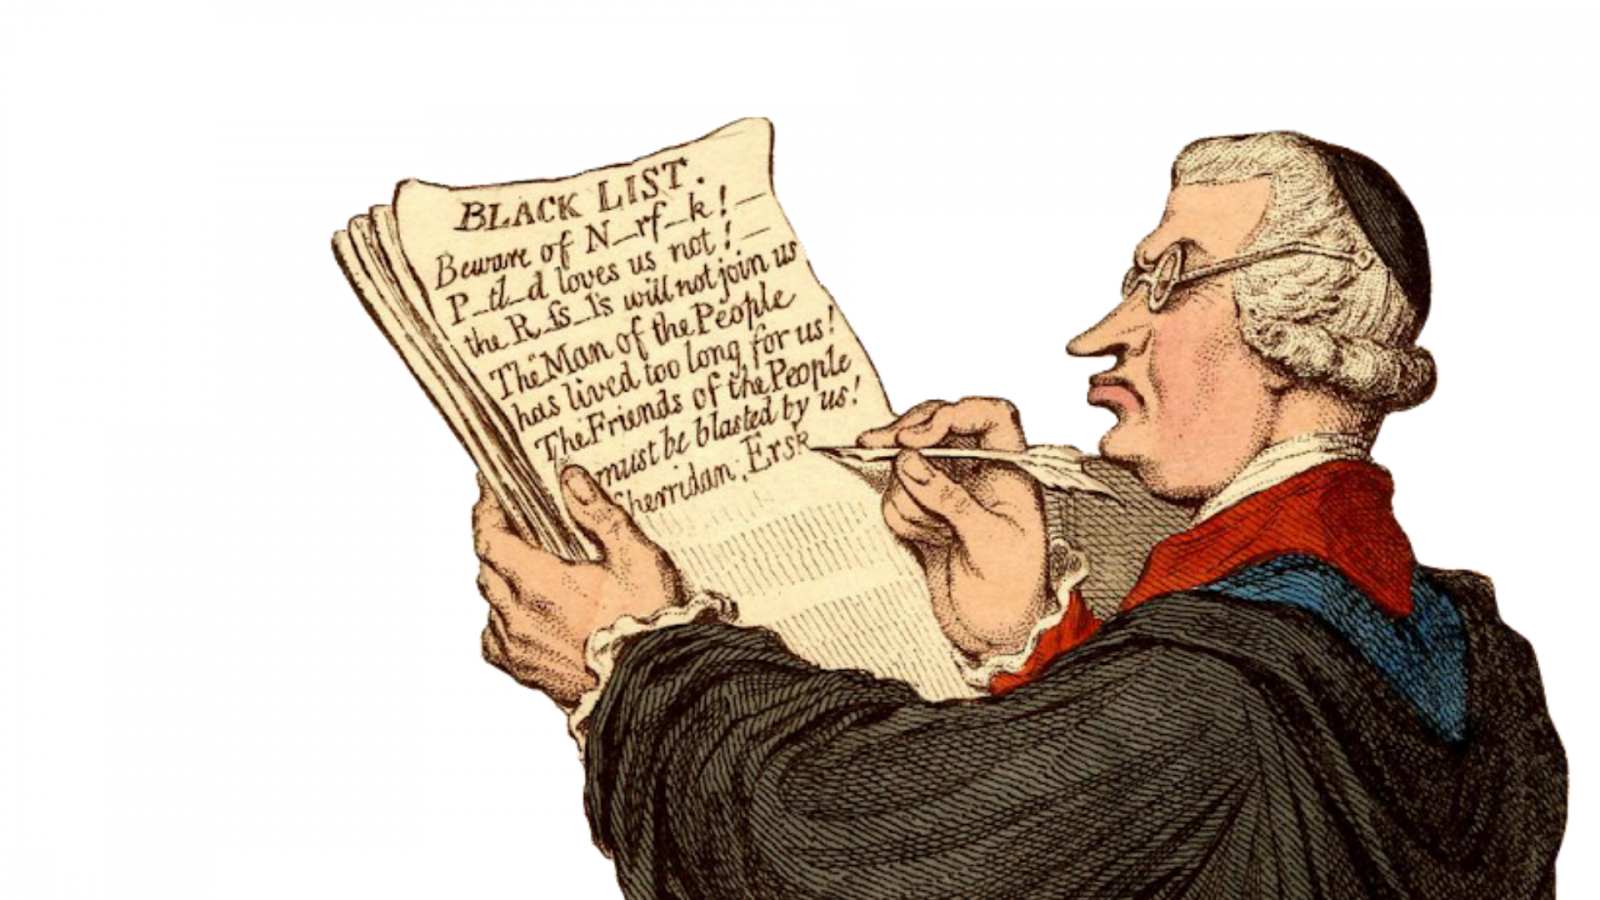 BLACK LIST.
Beware of N_rf_k! —
P_tl_d loves us not! —
the R_fs_ls will not join us
The "Man of the People
has lived too long for us!
The Friends of the People
must be blasted by us!
Sherridan, Ersk